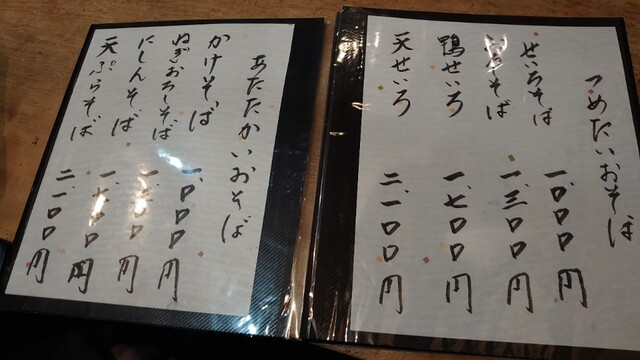 つめたいおそば
せいろそば 一、〇〇〇円
そば 一、三〇〇円
鴨せいろ 一、七〇〇円
天せいろ 二、一〇〇円
あたたかいおそば
かけそば 一、〇〇〇円
ねぎおろしそば 〇〇円
にしんそば 一、七〇〇円
天ぷらそば 二、一〇〇円